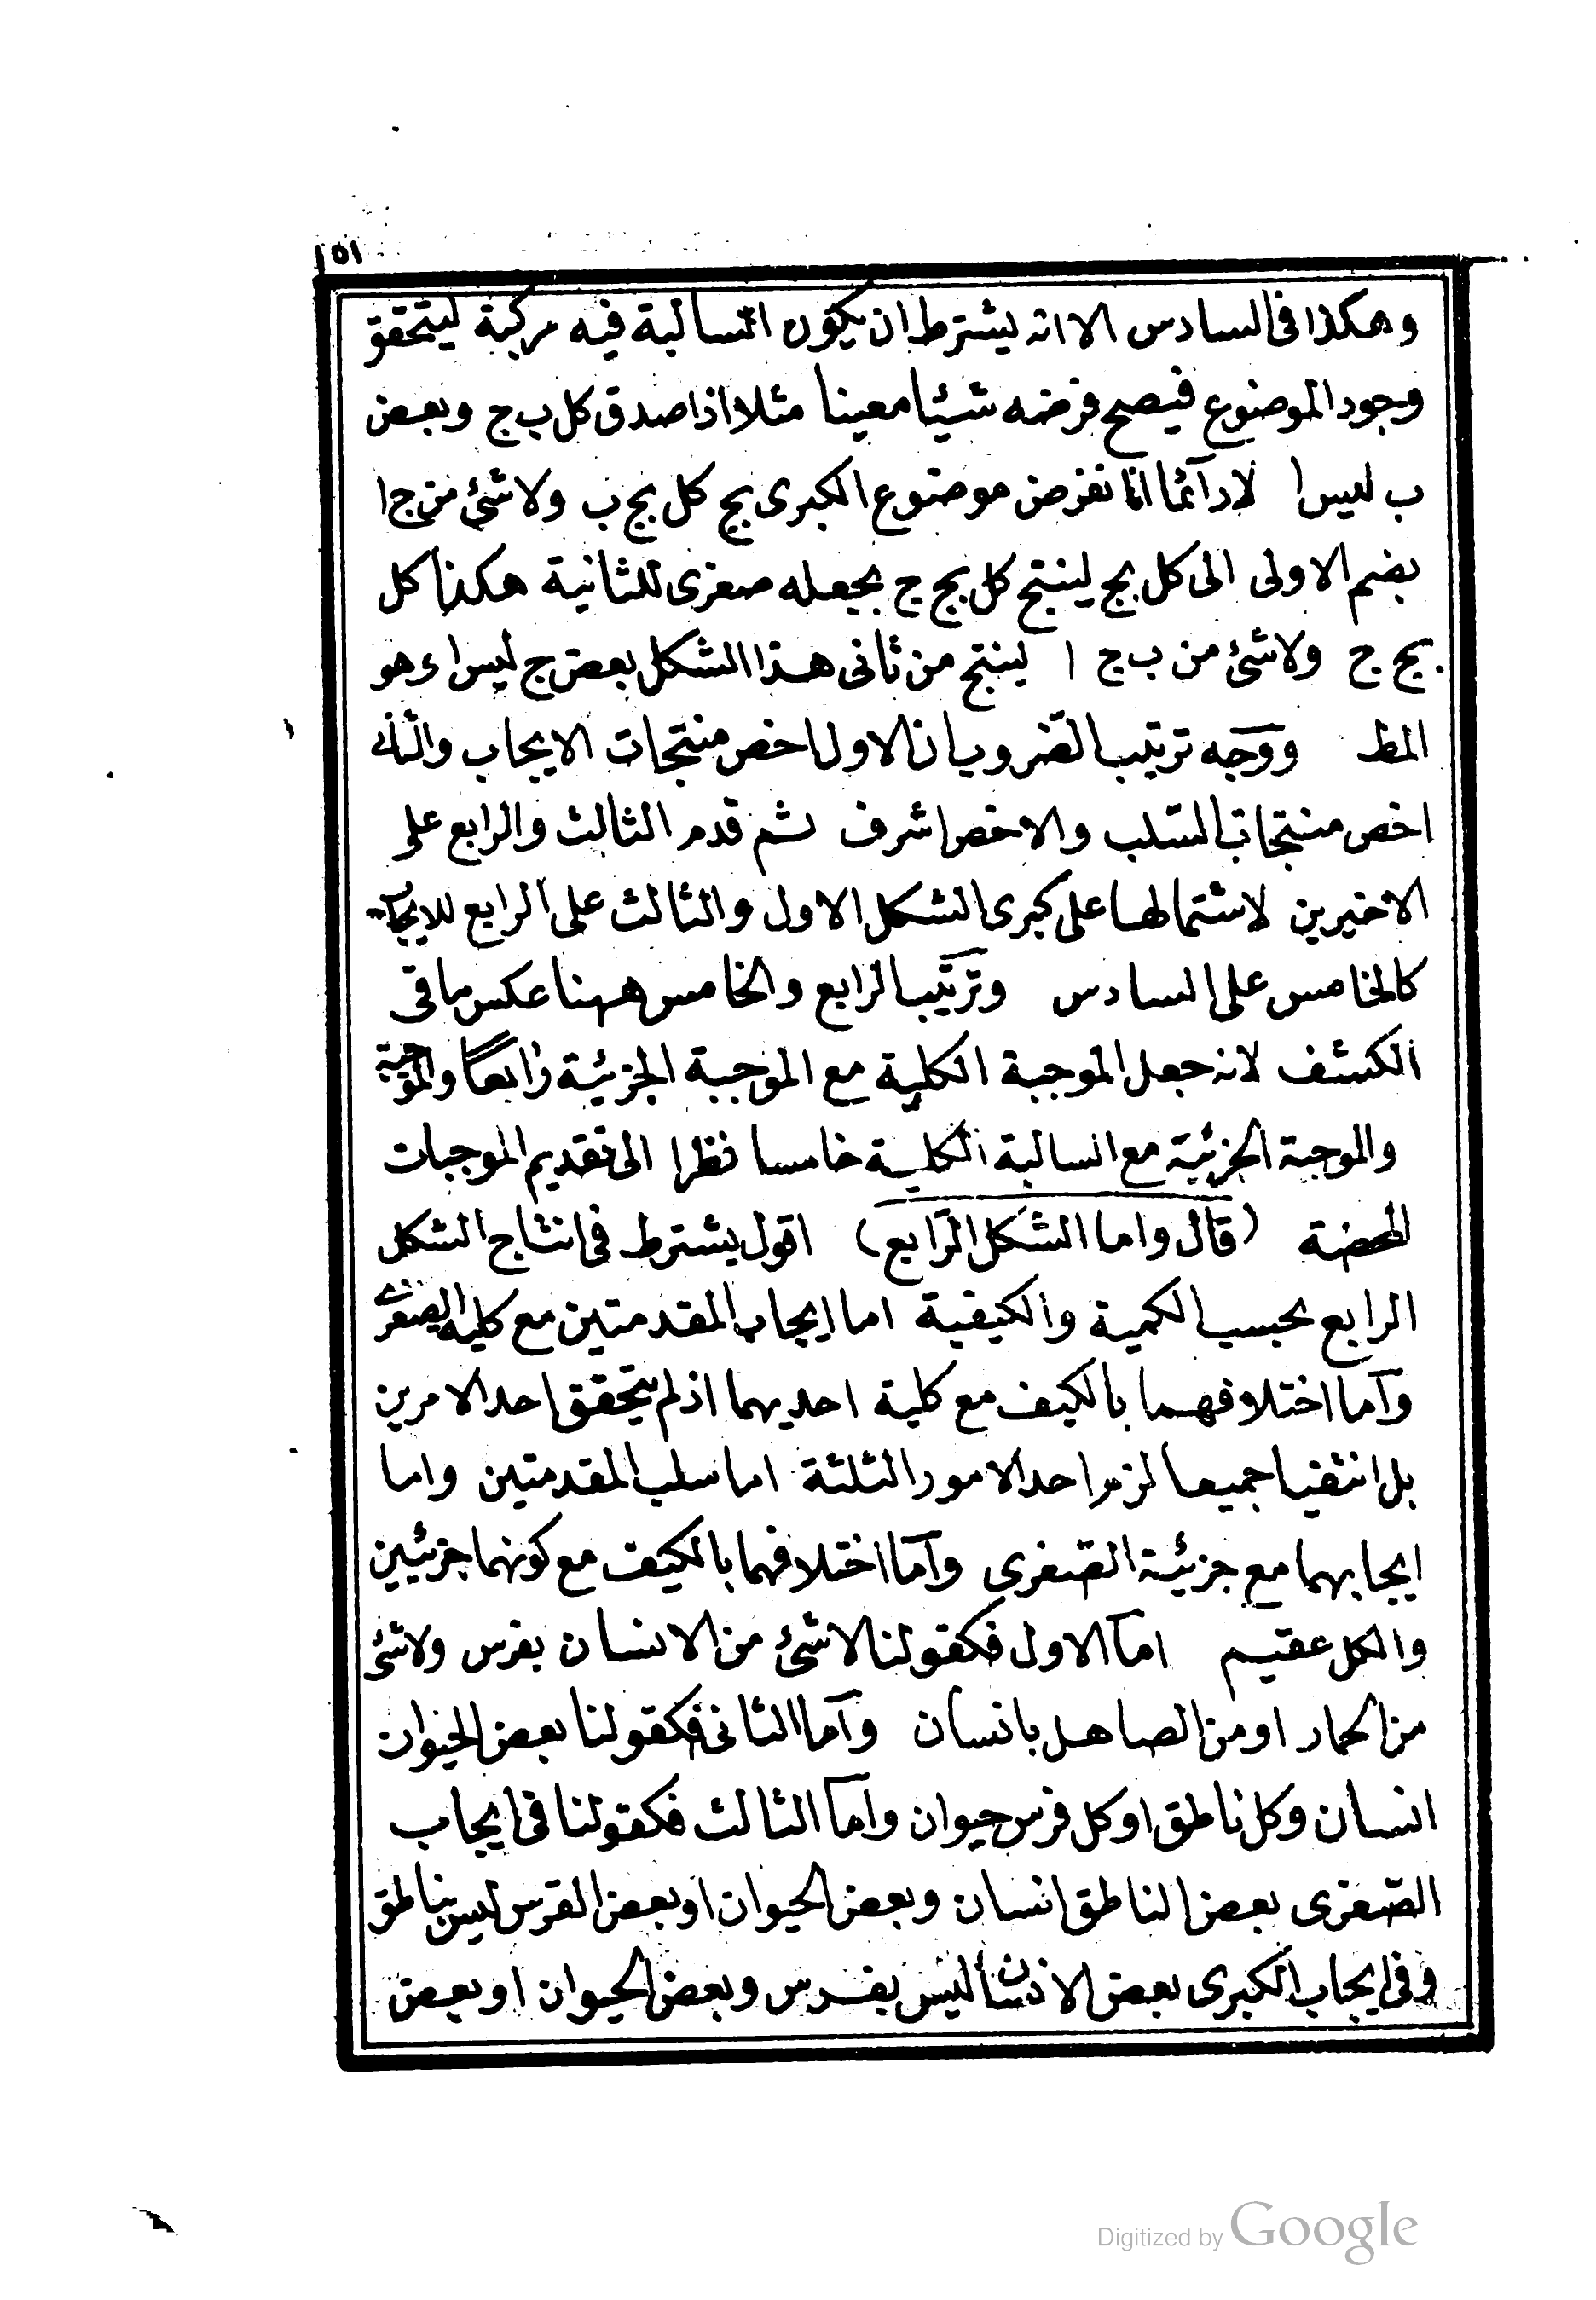 ١٥١
وهكذا فى السادس الا انه يشترط ان يكون السالبة فيه مركبة ليتحقق
وجود الموضوع فيصح فرضه شيئا معينا مثلا اذا صدق كل ب ج وبعض
ب ليس ا لا دآئما انا نفرض موضوع الكبرى بج كل بج ب ولا شئ من ج ا
بضم الاولى الى كل بج لينتج كل بج ج بجعله صغرى للثانية هكذا كل
بج ج ولا شئ من ب ج ا لينتج من ثانى هذا الشكل بعض ج ليس ا وهو
المط ووجه ترتيب الضروب ان الاول اخص منتجات الايجاب والثانى
اخص منتجات السلب والاخص اشرف ثم قدم الثالث والرابع على
الاخيرين لاشتمالها على كبرى الشكل الاول والثالث على الرابع للايجاب
كالخامس على السادس وترتيب الرابع والخامس ههنا عكس ما فى
الكشف لانه جعل الموجبة الكلية مع الموجبة الجزئية رابعا والموجبة
والموجبة الجزئية مع السالبة الكلية خامسا نظرا الى تقديم الموجبات
المحضة (قال واما الشكل الرابع) اقول يشترط فى انتاج الشكل
الرابع بحسب الكمية والكيفية اما ايجاب المقدمتين مع كلية الصغرى
وآما اختلافهما بالكيف مع كلية احديهما اذ لم يتحقق احد الامرين
بل انتفيا جميعا لزم احد الامور الثلثة اما سلب المقدمتين واما
ايجابهما مع جزئية الصغرى وآما اختلافهما بالكيف مع كونهما جزئيين
والكل عقيم اما الاول فكقولنا لا شئ من الانسان بفرس ولا شئ
من الحمار او من الصاهل بانسان وآما الثانى فكقولنا بعض الحيوان
انسان وكل ناطق او كل فرس حيوان وآما الثالث فكقولنا فى ايجاب
الصغرى بعض الناطق انسان وبعض الحيوان او بعض الفرس ليس بناطق
وفى ايجاب الكبرى بعض الانسان ليس بفرس وبعض الحيوان او بعض
Digitized by Google